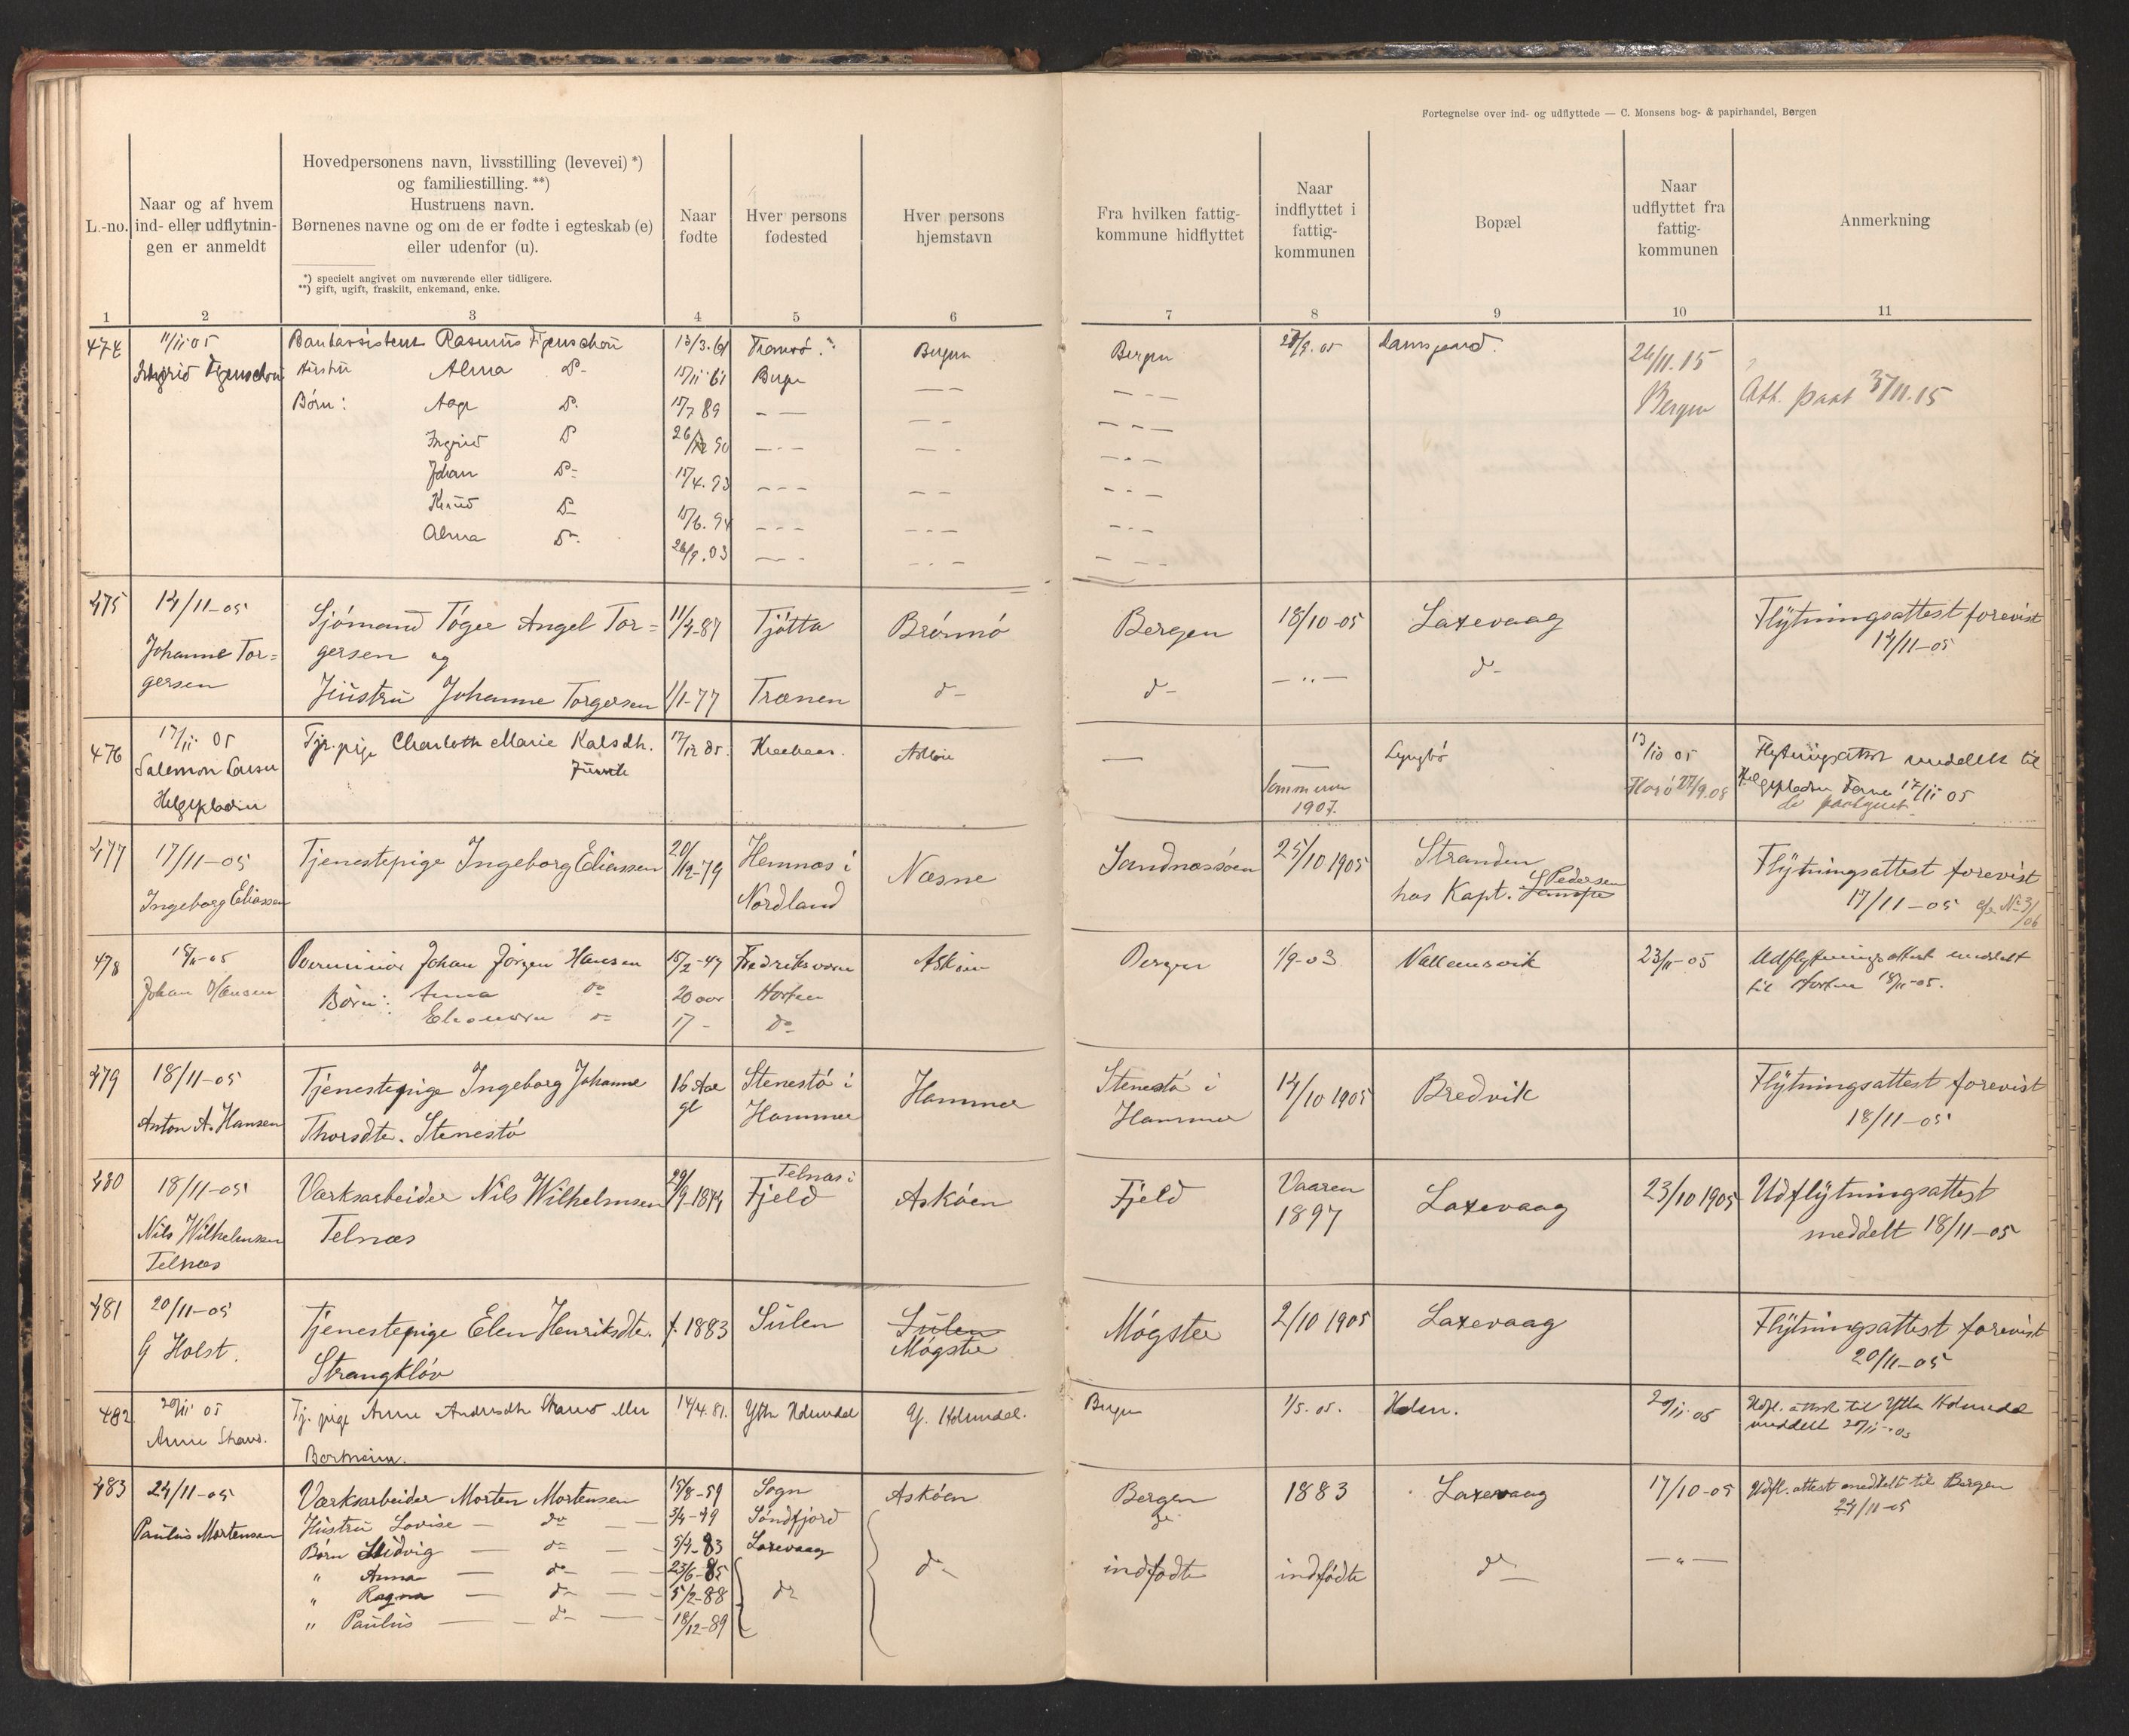 Fortegnelse over ind- og udflyttede — C. Monsens bog- & papirhandel, Bergen
L.-no.
Naar og af hvem
ind- eller udflytnin-
gen er anmeldt
Hovedpersonens navn, livsstilling (levevei) *)
og familiestilling. **)
Hustruens navn.
Børnenes navne og om de er fødte i egteskab (e)
eller udenfor (u).
*) specielt angivet om nuværende eller tidligere.
**) gift, ugift, fraskilt, enkemand, enke.
Naar
fødte
Hver persons
fødested
Hver persons
hjemstavn
Fra hvilken fattig-
kommune hidflyttet
Naar
indflyttet i
fattig-
kommunen
Bopæl
Naar
udflyttet fra
fattig-
kommunen
Anmerkning
1 2 3 4 5 6 7 8 9 10 11
474 11/11 05 Rasmus Figenschou 13/3.61 Tromsø Bergen Bergen Damsgaard. 26/11.15
Ingrid Figenschou Hustru Alma D- 15/11 61 Bergen — —
Børn: Aage D. 15/7 89 — — Bergen Att. paat 3/11.15
Ingrid D 26/12 90
Johan D- 15/4.93
Knud D- 15/6.94
Alma D-. 26/9.03
475 14/11-05 Sjømand Tøger Angel Tor= 11/4-87 Tjøtta Brønnø Bergen 18/10-05 Laxevaag Flytningsattest forevist
Johanne Tor= gersen og 14/11-05
gersen Hustru Johanne Torgersen 1/1-77 Trænen d- d- — " — d-
476 17/11 05 Tj. pige Charlotte Marie Kalsdh. 17/12 85 Askøen — Lyngbø 13/10 05 Flytningsattest meddelt til
Salemon Larsen 17/11 05
Helgepladsen Sommeren 1907. Florø 27/9.08
477 17/11-05 Tjenestepige Ingeborg Eliassen 20/12-79 Hemnæs i Næsne Sandnæssøen 25/10 1905 Stranden Flytningsattest forevist
Ingeborg Eliassen Nordland hos Kapt. Pedersen 17/11-05 cfr. No 3/06
478 18/11-05 Johan Jørgen Hansen 15/2-47 Fredriksværn Askøen Bergen 1/9-03 23/11-05 Udflytningsattest meddelt
Johan Hansen Børn: Anna do 20 aar Horten til Horten 18/11-05.
Eleonora do 17 - do
479 18/11-05 Tjenestepige Ingeborg Johanne 16 Aar Stenestø i Hammer Stenestø i 14/10 1905 Bredvik Flytningsattest forevist
Anton A. Hansen Thorsdtr. Stenestø gl Hammer Hammer 18/11-05
480 18/11-05 Værksarbeider Nils Wilhelmsen 29/9-1874 Telnæs i Fjeld Askøen Fjeld Vaaren 1897 Laxevaag 23/10 1905 Udflytningsattest
Nils Wilhelmsen Telnæs meddelt 18/11-05
Telnæs
481 20/11-05 Tjenestepige Elen Henriksdtr. f. 1883 Sulen Sulen Møgster 2/10 1905 Laxevaag Flytningsattest forevist
G Holst. Strangkløv Møgster 20/11-05
482 20/11 05 Tj. pige Anne Andersdtr 14/4.81. Ytre Holmedal Y. Holmedal. Bergen 1/5.05. Holen. 20/11.05 Udfl. attest til Ytre Holmedal
Anne meddelt 20/11-05
483 24/11-05 Værksarbeider Morten Mortensen 15/8-59 Sogn Askøen Bergen 1883 Laxevaag 17/10-05 Udfl. attest meddelt til Bergen
Paulus Mortensen Hustru Lovise — do — 3/4-49 Søndfjord 24/11-05
Børn Ludvig — do — 5/4-83 Laxevaag
" Anna — do — 23/6-85 do d- indfødte indfødte d- — " —
" Ragna — do — 5/2-88
" Paulus — do — 18/12-89